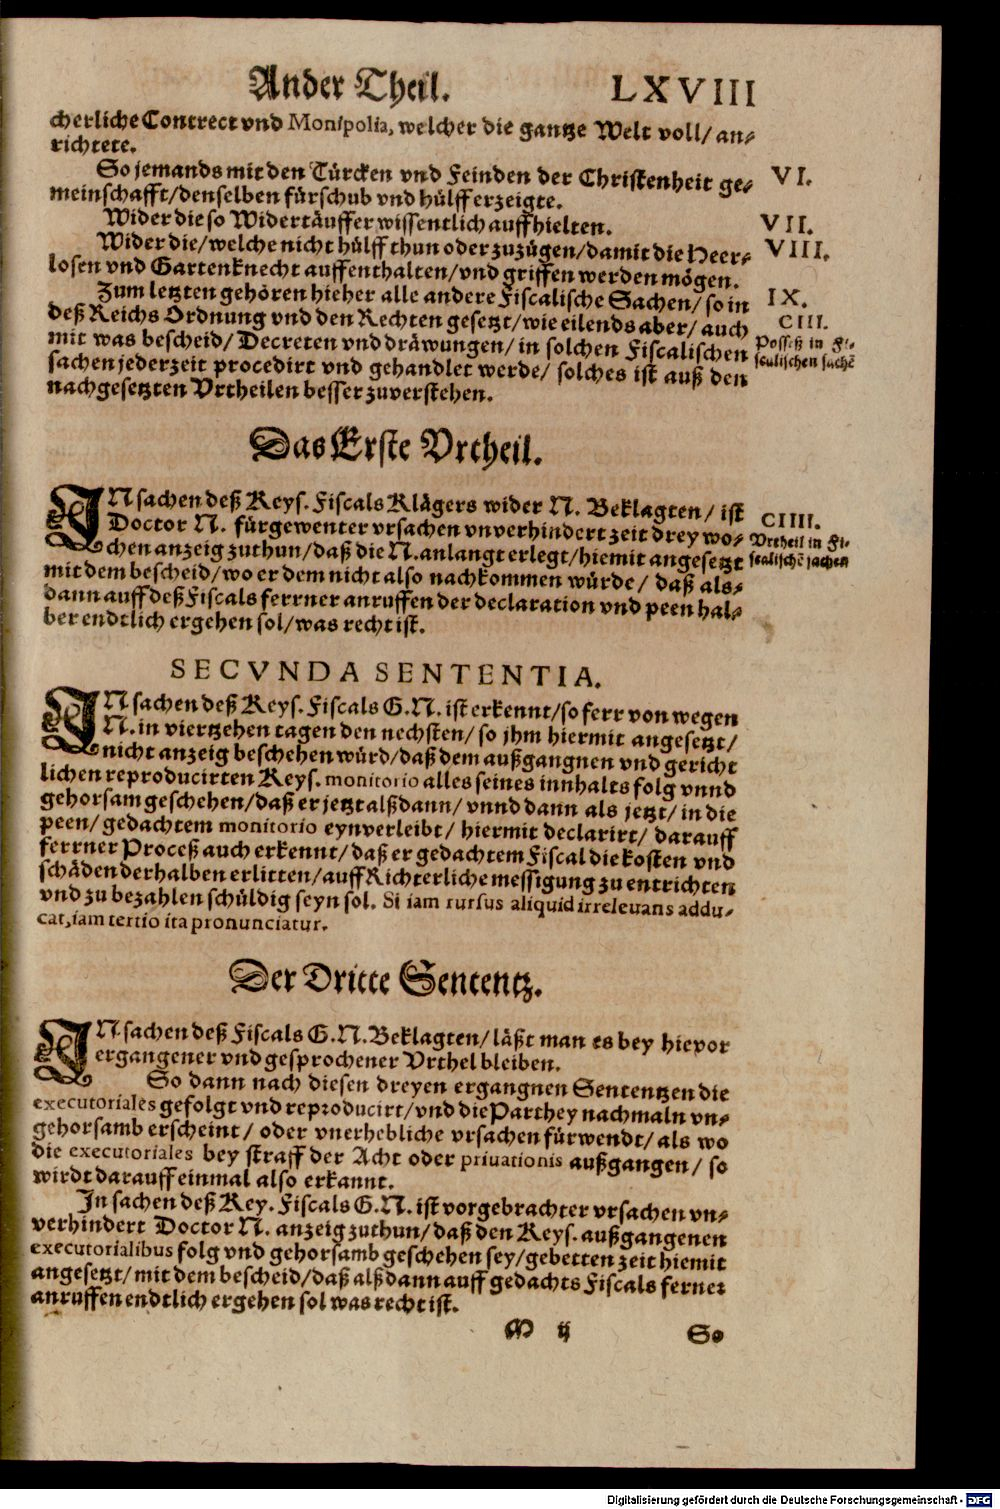 Ander Theil. LXVIII
cherliche Contrect vnd Monipolia, welcher die gantze Welt voll/ an-
richtete.
So jemands mit den Türcken vnd Feinden der Christenheit ge-
meinschafft/denselben fürschub vnd hülff erzeigte.
VI.
Wider die so Widertäuffer wissentlich auffhielten.
VII.
Wider die/welche nicht hülff thun oder zuzügen/damit die Heer-
VIII.
losen vnd Gartenknecht auffenthalten/vnd griffen werden mögen.
Zum letzten gehören hieher alle andere Fiscalische Sachen/ so in
IX.
deß Reichs Ordnung vnd den Rechten gesetzt/wie eilends aber/ auch
CIII.
mit was bescheid/ Decreten vnd dräwungen/ in solchen Fiscalischen
Posseß in Fi-
scalischen sachē
sachen jederzeit procedirt vnd gehandlet werde/ solches ist auß den
nachgesetzten Vrtheilen besser zuverstehen.
Das Erste Vrtheil.
IN sachen deß Keys. Fiscals Klägers wider N. Beklagten/ ist
Doctor N. fürgewenter vrsachen vnverhindert zeit drey wo-
CIIII.
Vrtheil in Fi-
scalischē sachen
chen anzeig zuthun/daß die N. anlangt erlegt/hiemit angesetzt
mit dem bescheid/wo er dem nicht also nachkommen würde/ daß als-
dann auff deß Fiscals ferrner anruffen der declaration vnd peen hal-
ber endtlich ergehen sol/was recht ist.
SECVNDA SENTENTIA.
IN sachen deß Keys. Fiscals G.N. ist erkennt/so ferr von wegen
N. in viertzehen tagen den nechsten/ so jhm hiermit angesetzt/
nicht anzeig beschehen würd/daß dem außgangnen vnd gericht
lichen reproducirten Keys. monitorio alles seines innhalts folg vnnd
gehorsam geschehen/daß er jetzt alßdann/ vnnd dann als jetzt/ in die
peen/ gedachtem monitorio eynverleibt/ hiermit declarirt/ darauff
ferrner Proceß auch erkennt/daß er gedachtem Fiscal die kosten vnd
schäden derhalben erlitten/auff Richterliche messigung zu entrichten
vnd zu bezahlen schüldig seyn sol. Si iam rursus aliquid irreleuans addu-
cat, iam tertio ita pronunciatur.
Der Dritte Sententz.
IN sachen deß Fiscals G.N. Beklagten/läßt man es bey hievor
ergangener vnd gesprochener Vrthel bleiben.
So dann nach diesen dreyen ergangnen Sententzen die
executoriales gefolgt vnd reproducirt/vnd die Parthey nachmaln vn-
gehorsamb erscheint/ oder vnerhebliche vrsachen fürwendt/ als wo
die executoriales bey straff der Acht oder priuationis außgangen/ so
wirdt darauff einmal also erkannt.
In sachen deß Key. Fiscals G.N. ist vorgebrachter vrsachen vn-
verhindert Doctor N. anzeig zuthun/daß den Keys. außgangenen
executorialibus folg vnd gehorsamb geschehen sey/gebetten zeit hiemit
angesetzt/mit dem bescheid/daß alßdann auff gedachts Fiscals ferner
anruffen endtlich ergehen sol was recht ist.
M ij So
Digitalisierung gefördert durch die Deutsche Forschungsgemeinschaft - DFG